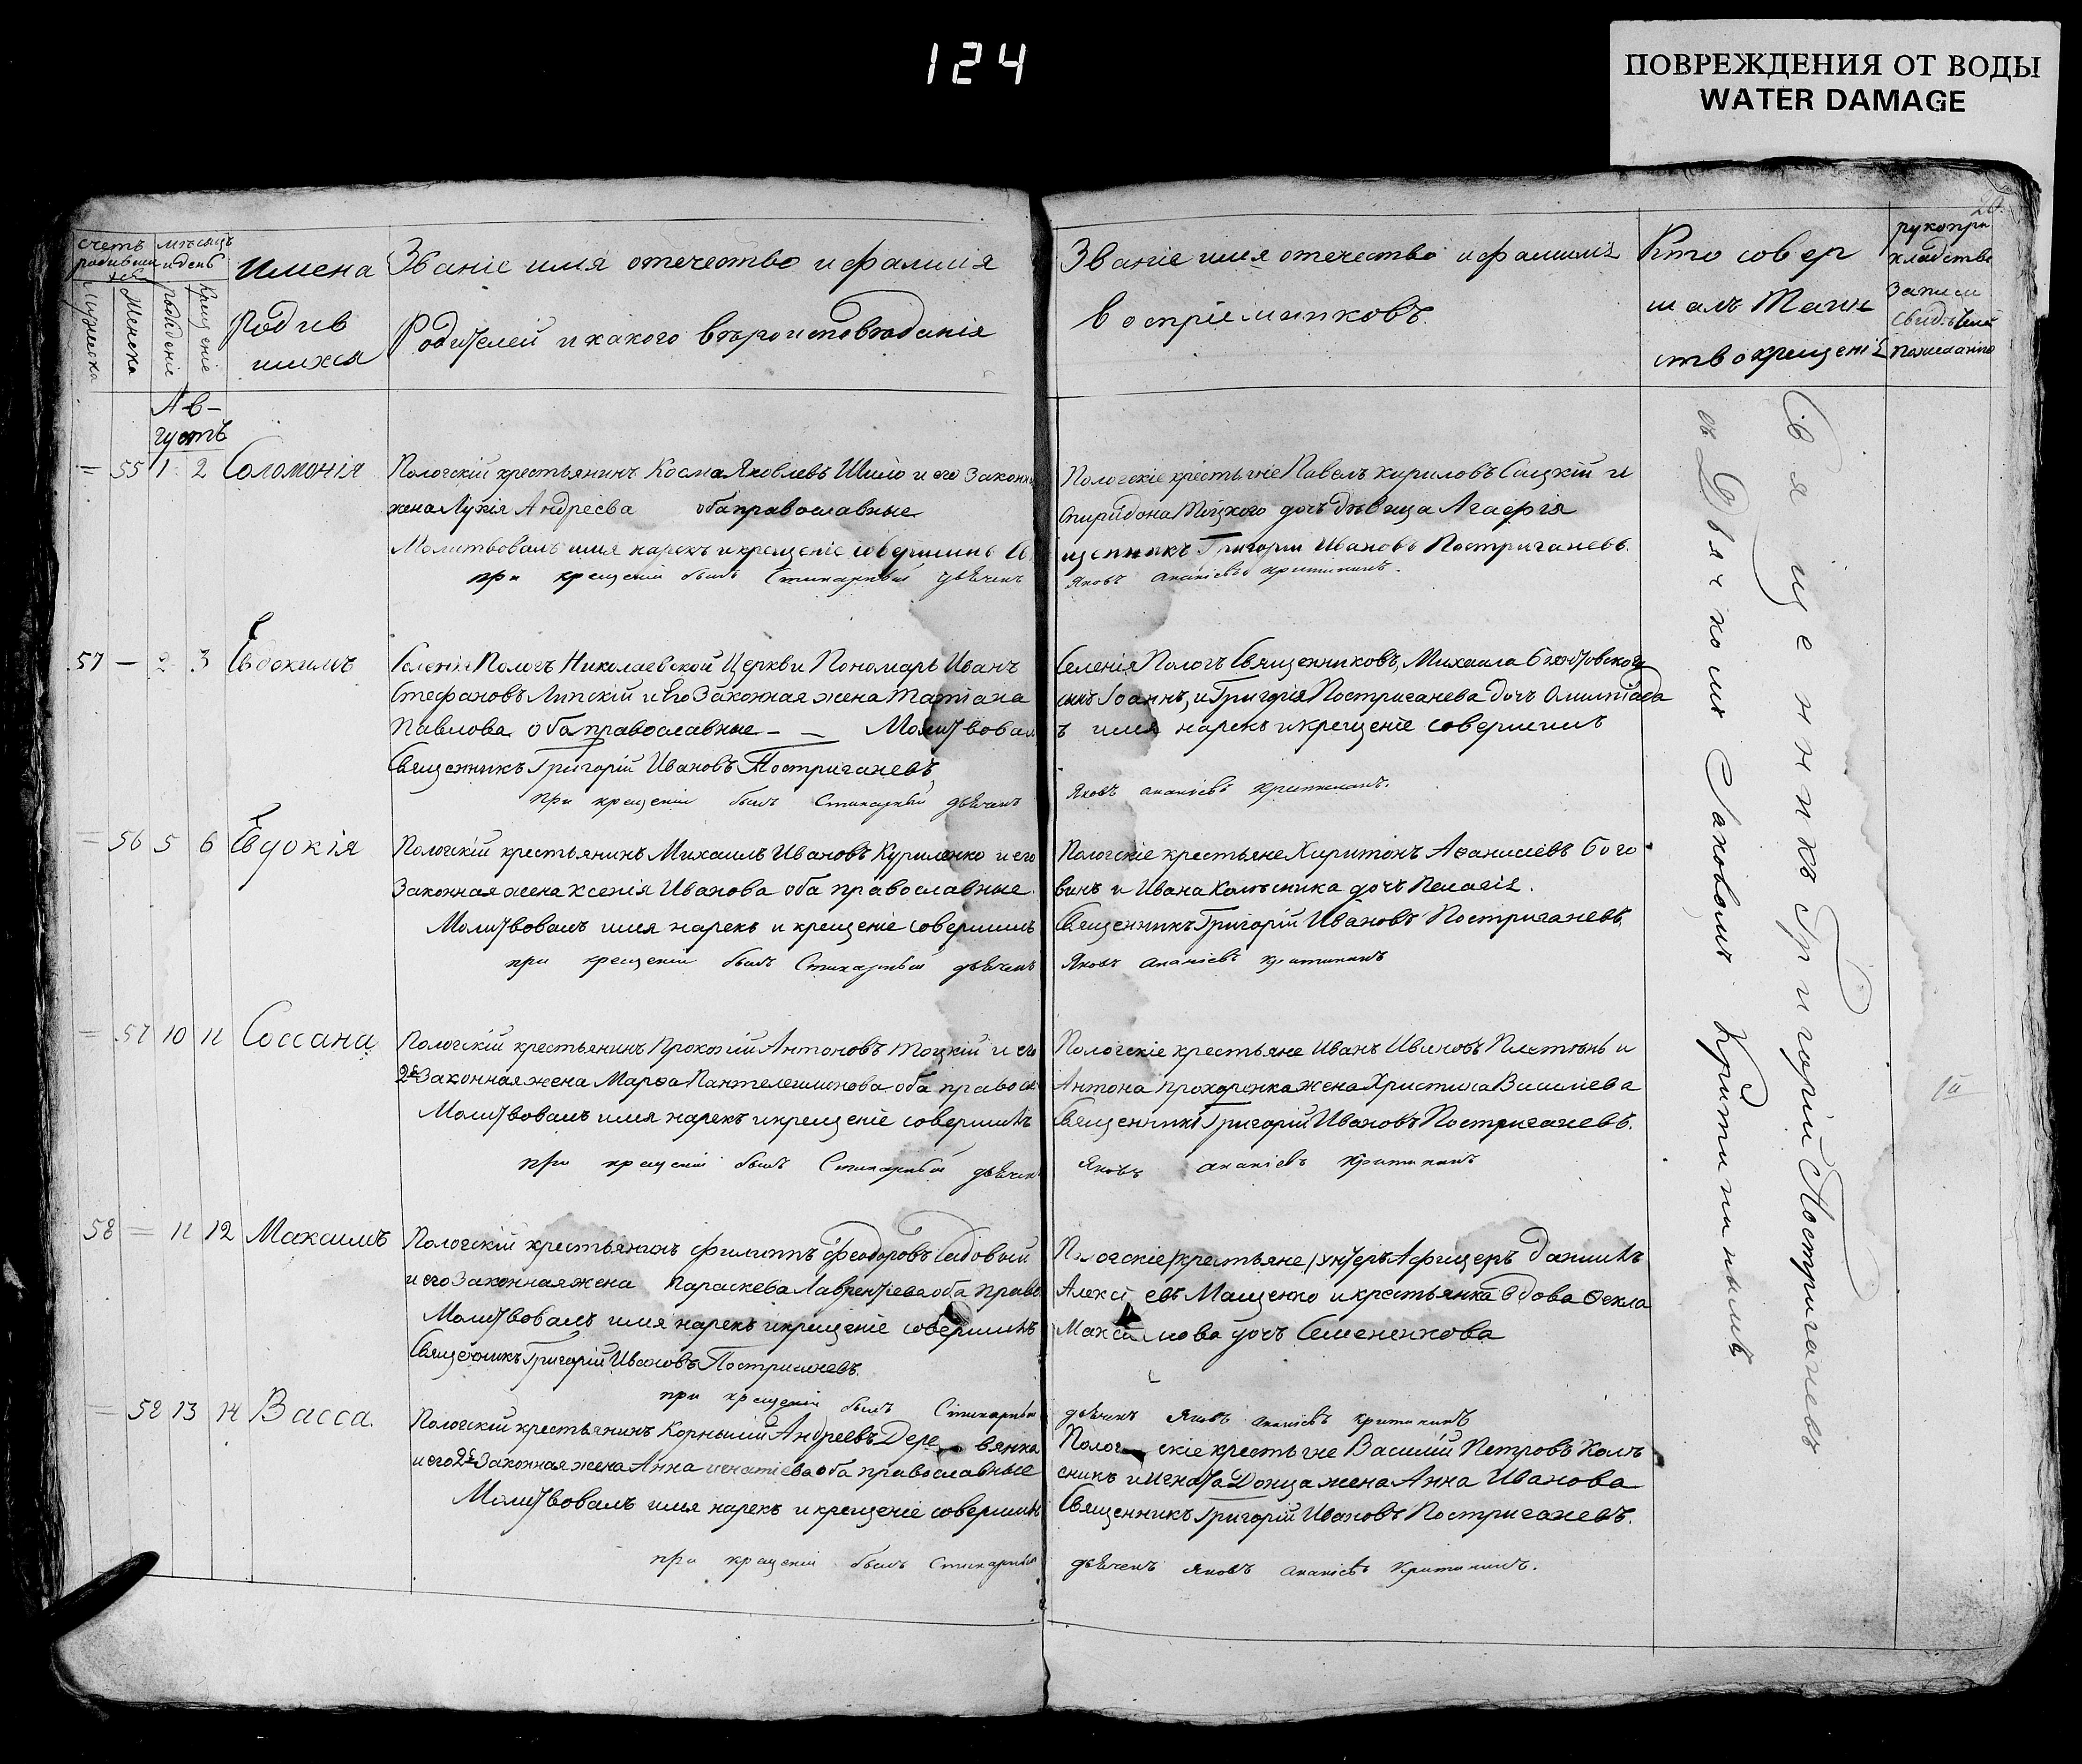 124
ПОВРЕЖДЕНИЯ ОТ ВОДЫ
WATER DAMAGE
Счетъ родивших ся
мужеска
Женска
Мѣсяцъ и день
рожденіе
Крещеніе
Имена
Родив
шихся
Званіе имя отечество и фамилія
Родителей и какого вѣроисповѣданія
Званіе имя отечество и фамилія
воспріемниковъ.
Кто совер
шалъ Таин
ство крещенія
рукопри
кладство
Записи
свидѣтелей
пожеланію
Ав-
густъ
= 55 1 2 Соломонія
Пологскій крестьянинъ Косма Яковлевъ Шило и его Законн
жена Лукія Андреева оба православные
Молитвовалъ имя нарекъ и крещеніе совершилъ Св
при крещеніи былъ Стихарный дьячекъ
Пологскіе крестьяне Павелъ Кириловъ Сацкій и
Спиридона Тоцкого дочь дѣвица Агафія
щенникъ Григорій Ивановъ Постригачевъ.
Яковъ Ананіевъ Критининъ.
57 — 2 3 Евдокимъ
Селенія Пологъ Николаевской Церкви Пономарь Иванъ
Стефановъ Липскій и Его Законная жена Татіана
Павлова оба православные — — Молитвовал
Священникъ Григорій Ивановъ Постригачевъ
при крещеніи былъ Стихарный дьячекъ
Селенія Пологъ Священниковъ, Михаила
сынъ Іоаннъ, и Григорія Постригачева дочь Олимпіада
ъ имя нарекъ и крещеніе совершилъ
Яковъ Ананіевъ Критининъ.
= 56 5 6 Евдокія
Пологскій крестьянинъ Михаилъ Ивановъ Куриленко и его
Законная жена Ксенія Иванова оба православные.
Молитвовалъ имя нарекъ и крещеніе совершилъ
при крещеніи былъ Стихарный дьячекъ
Пологскіе крестьяне Харитонъ Афанасіевъ Бого
винъ и Ивана Колѣсника дочь Пелагія.
Священникъ Григорій Ивановъ Постригачевъ
Яковъ Ананіевъ Критининъ
= 57 10 11 Соссана
Пологскій крестьянинъ Прокофій Антоновъ Тоцкій и его
2я Законная жена Марѳа Пантелеимонова оба правосл
Молитвовалъ имя нарекъ и крещеніе совершилъ
при крещеніи былъ Стихарный дьячек
Пологскіе крестьяне Иванъ Ивановъ Плетюнь и
Антона Прохоренка жена Христина Василіева
Священникъ Григорій Ивановъ Постригачевъ.
Яковъ Ананіевъ Критининъ
58 = 11 12 Максимъ
Пологскій крестьянинъ Филиппъ Феодоровъ Садовый
и его Законная жена Параскева Лаврентіева оба право
Молитвовалъ имя нарекъ и крещеніе совершилъ
Священникъ Григорій Ивановъ Постригачевъ.
при крещеніи былъ Стихарный
Пологскіе крестьяне / унтеръ Афицеръ Даніилъ
Алексіевъ Мащенко и крестьянка вдова Ѳекла
Максимова дочь Семененкова
дьячекъ Яковъ Ананіевъ Критининъ
= 58 13 14 Васса.
Пологскій крестьянинъ Корнилій Андреевъ Дере вянка
и его 2я Законная жена Анна Игнатіева оба православные
Молитвовалъ имя нарекъ и крещеніе совершилъ
при крещеніи былъ Стихарный
Полог скіе крестьяне Василій Петровъ Колѣ
сникъ и Игната Донца жена Анна Иванова
Священникъ Григорій Ивановъ Постригачевъ.
дьячекъ Яковъ Ананіевъ Критининъ.
Священникъ Григорій Постригачевъ
съ Дьячкомъ Яковомъ Критининымъ